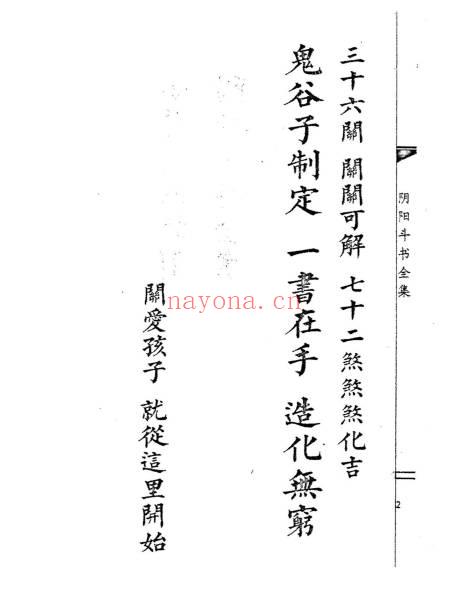 阴阳斗书全集
2
三十六關 關關可解 七十二煞煞煞化吉
鬼谷子制定 一書在手 造化無窮
關愛孩子 就從這里開始
nayona.cn